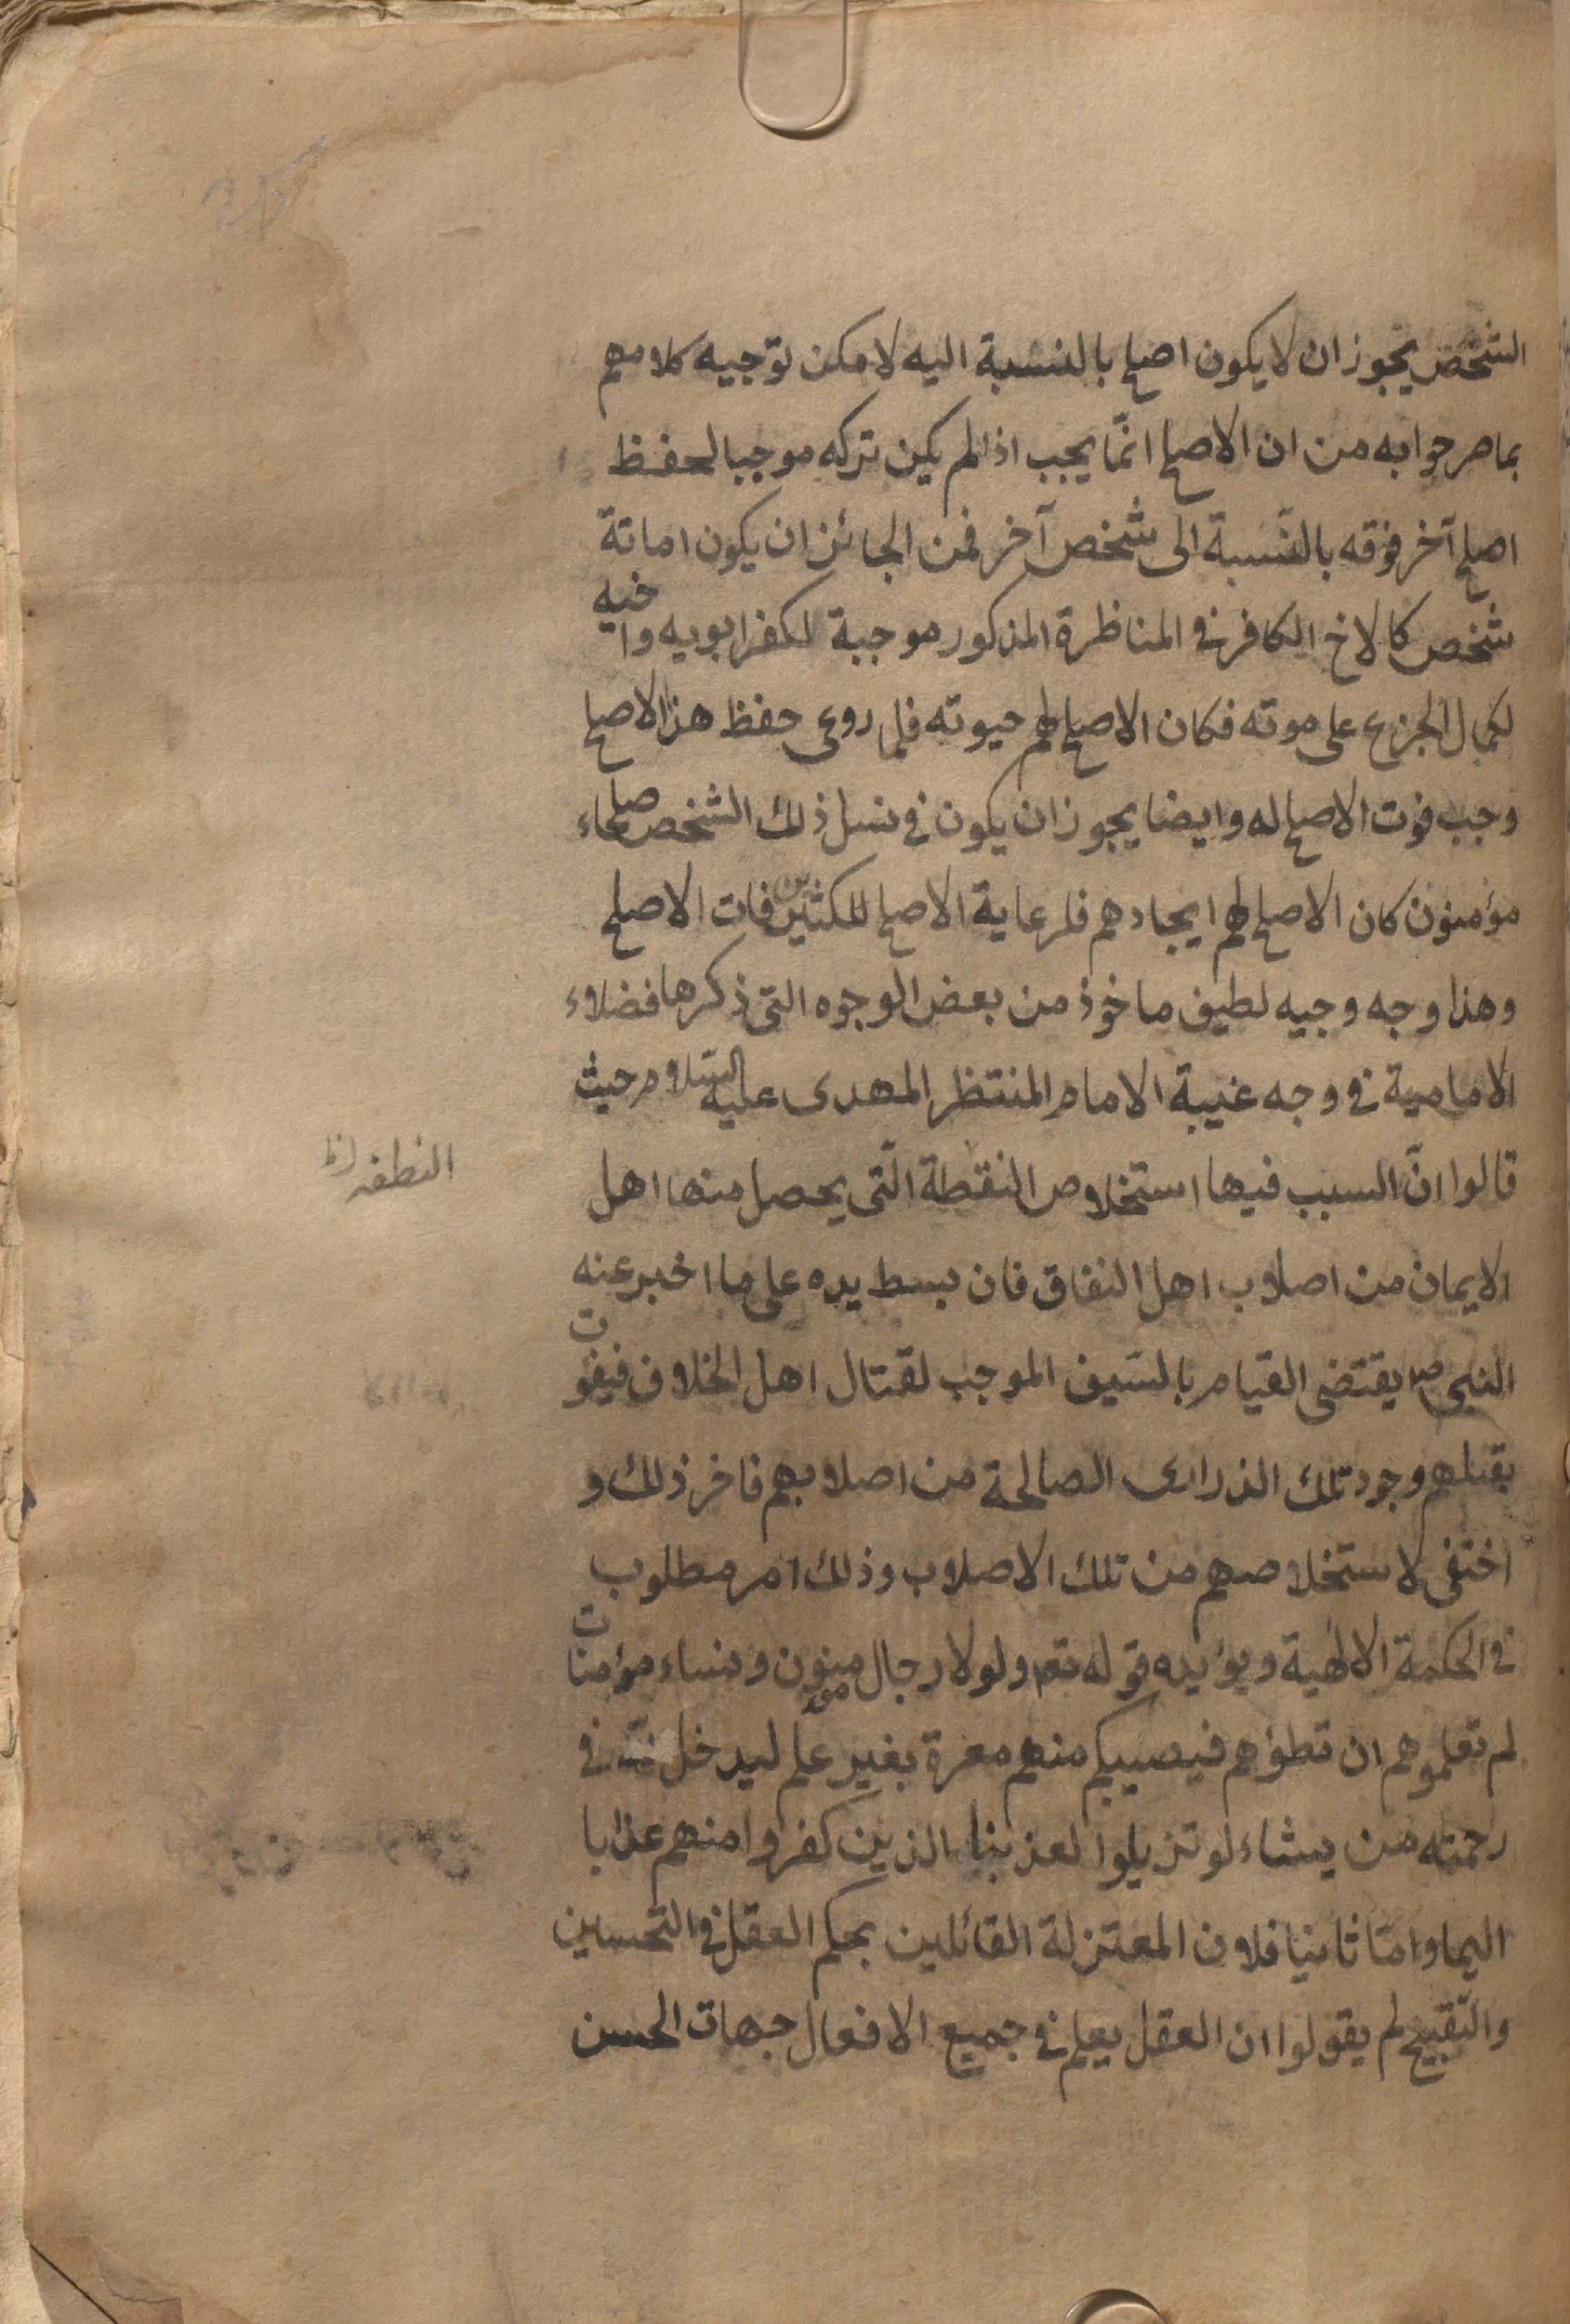 الشخص يجوز ان لا يكون اصلح بالنسبة اليه لامكن توجيه كلامهم
بما مر جوابه من ان الاصلح انّما يجب اذا لم يكن تركه موجبا لحفظ
اصلح آخر فوقه بالنّسبة الى شخص آخر فمن الجائز ان يكون اماتة
شخص كالاخ الكافر في المناظرة المذكور موجبة لكفر ابويه واخيه
لكمال الجزع على موته فكان الاصلح لهم حيوته فلما روعى حفظ هذا الاصلح
وجب فوت الاصلح له وايضا يجوز ان يكون في نسل ذلك الشخص صلحاء
مؤمنون كان الاصلح لهم ايجادهم فلرعاية الاصلح للكثيرين فات الاصلح
وهذا وجه وجيه لطيف ماخوذ من بعض الوجوه التى ذكرها فضلاء
الامامية في وجه غيبة الامام المنتظر المهدى عليه السّلام حيث
قالوا انّ السبب فيها استخلاص النقطة الّتى يحصل منها اهل
النطفه
الايمان من اصلاب اهل النفاق فان بسط يده على ما اخبر عنه
النبى ص يقتضى القيام بالسّيف الموجب لقتال اهل الخلاف فيفوت
بقتلهم وجود تلك الذرارى الصالحة من اصلابهم فاخر ذلك و
اختفى لاستخلاصهم من تلك الاصلاب وذلك امر مطلوب
في الحكمة الالهية ويؤيده قوله تعم ولولا رجال مؤمنون ونساء مؤمنات
لم تعلموهم ان تطؤهم فيصيبكم منهم معرة بغير علم ليدخل في
رحمته من يشاء لو تزيلوا لعذبنا الذين كفروا منهم عذابا
اليما وامّا ثانيا فلان المعتزلة القائلين بحكم العقل في التّحسين
والتّقبيح لم يقولوا ان العقل يعلم في جميع الافعال جهات الحسن